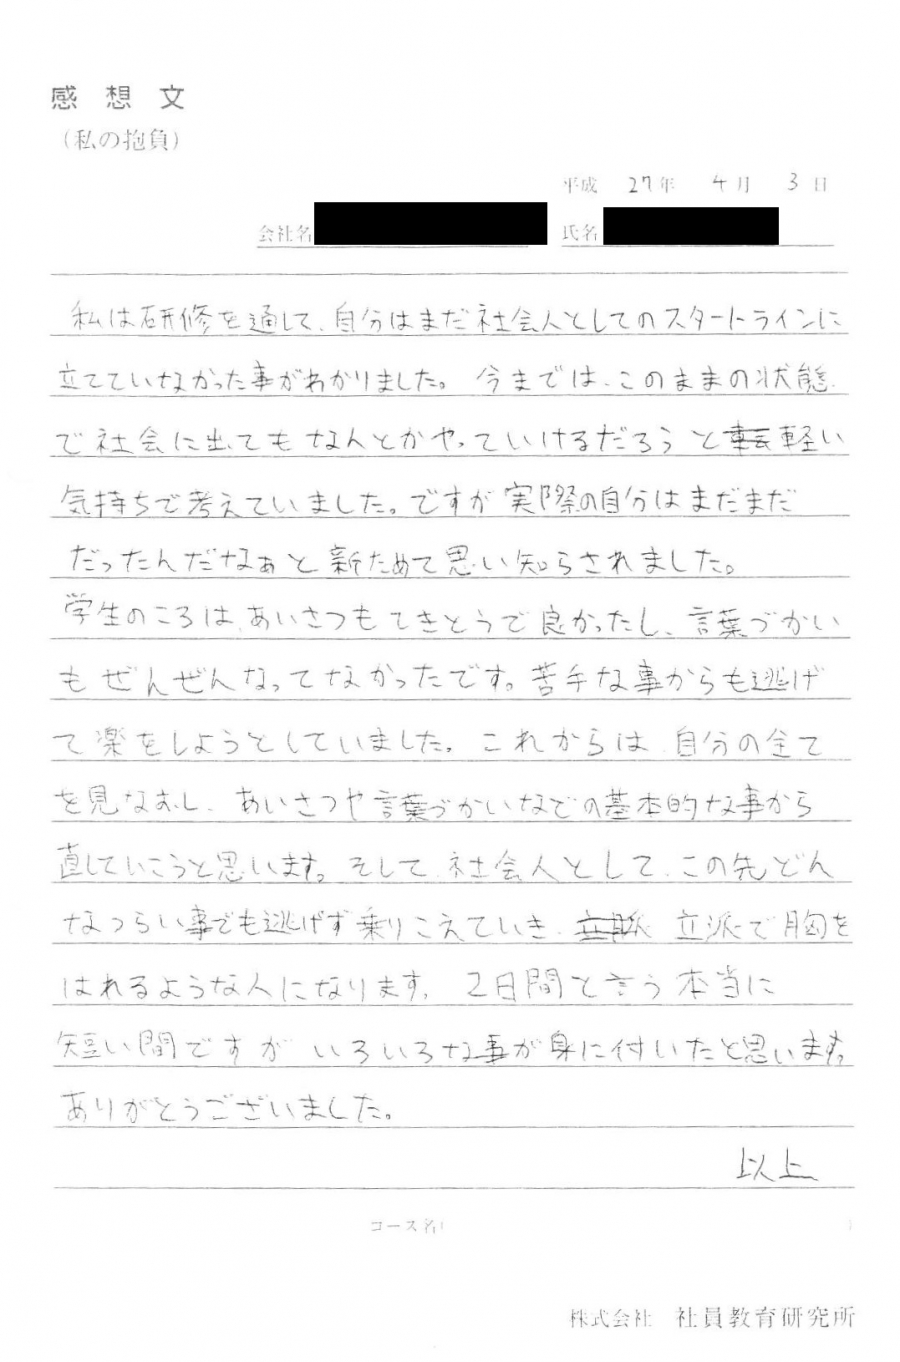 感想文
（私の抱負）
平成 27年 4月 3日
会社名 氏名
私は研修を通して、自分はまだ社会人としてのスタートラインに
立てていなかった事がわかりました。今までは、このままの状態
で社会に出てもなんとかやっていけるだろうと軽い
気持ちで考えていました。ですが実際の自分はまだまだ
だったんだなぁと新ためて思い知らされました。
学生のころは、あいさつもてきとうで良かったし、言葉づかい
もぜんぜんなってなかったです。苦手な事からも逃げ
て楽をしようとしていました。これからは、自分の全て
を見なおし、あいさつや言葉づかいなどの基本的な事から
直していこうと思います。そして、社会人として、この先どん
なつらい事でも逃げず乗りこえていき、立派で胸を
はれるような人になります。2日間と言う本当に
短い間ですがいろいろな事が身に付いたと思います。
ありがとうございました。
以上
コース名
株式会社 社員教育研究所